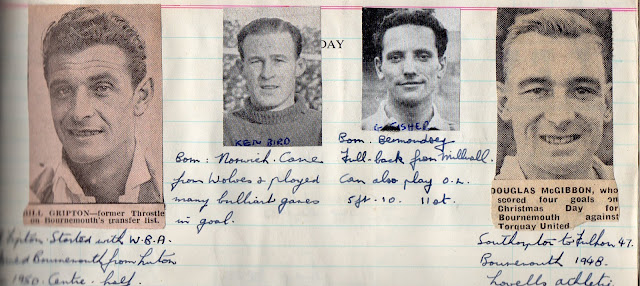 DAY
BILL GRIPTON—former Throstle
on Bournemouth's transfer list.
Gripton. Started with W.B.A.
Bournemouth from Luton
1950. Centre. half.
KEN BIRD
Born: Norwich. Came
from Wolves & played
many brilliant games
in goal.
FISHER
Born: Bermondsey
Full-back from Millwall.
Can also play O.L.
5ft. 10. 11st.
DOUGLAS McGIBBON, who
scored four goals on
Christmas Day for
Bournemouth against
Torquay United
Southampton to Fulham 47.
Bournemouth 1948.
Lovells athletic